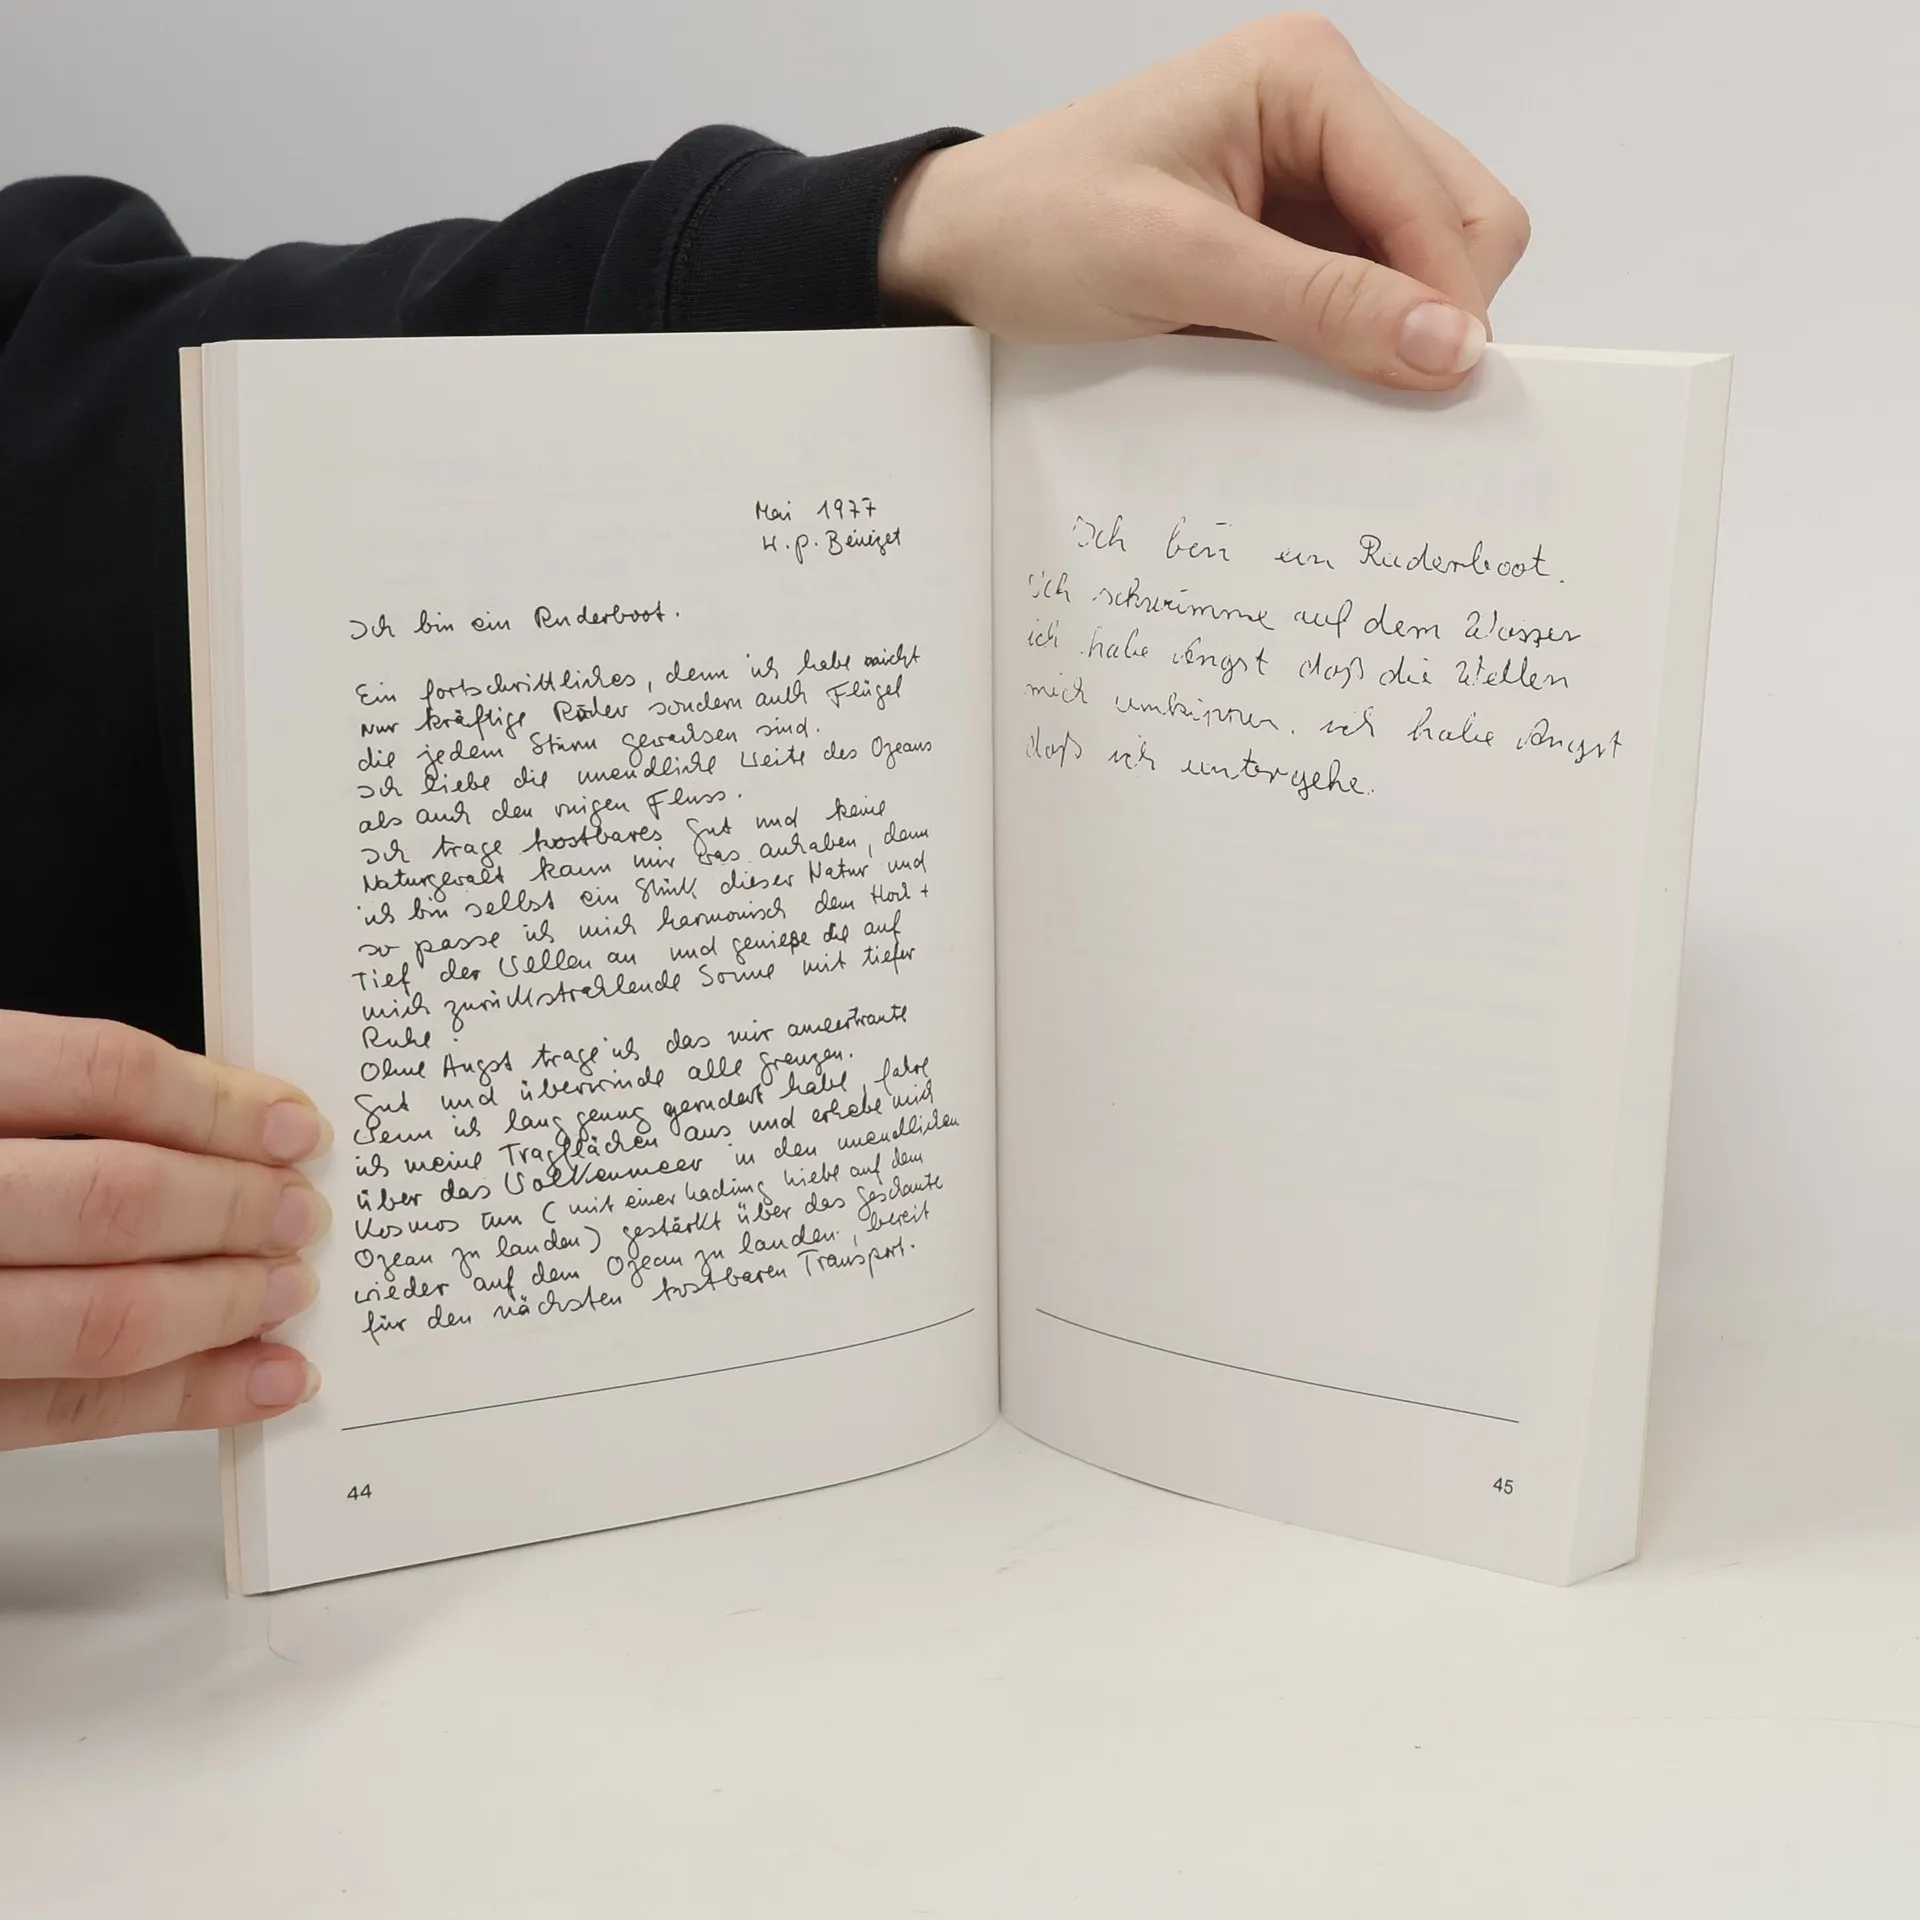 Mai 1977
H.p. Benezet
Ich bin ein Ruderboot.
Ein fortschrittliches, denn ich habe nicht
nur kräftige Ruder sondern auch Flügel
die jedem Sturm gewachsen sind.
Ich liebe die unendliche Weite des Ozeans
als auch den Fluss.
Ich trage kostbares Gut und keine
Naturgewalt kann mir was anhaben, denn
ich bin selbst ein Stück dieser Natur und
so passe ich mich harmonisch dem Hoch +
Tief der Wellen an und genieße die auf
mich zurückstrahlende Sonne mit tiefer
Ruhe.
Ohne Angst trage ich das mir anvertraute
Gut und überwinde alle Grenzen.
Wenn ich lang genug gerudert habe, fahre
ich meine Tragflächen aus und erhebe mich
über das Wolkenmeer in den unendlichen
Kosmos um (mit einer Ladung Liebe auf dem
Ozean zu landen) gestärkt über das geschaute
wieder auf dem Ozean zu landen, bereit
für den nächsten kostbaren Transport.
44
Ich bin ein Ruderboot.
ich schwimme auf dem Wasser
ich habe Angst daß die Wellen
mich umkippen. ich habe Angst
daß ich untergehe.
45